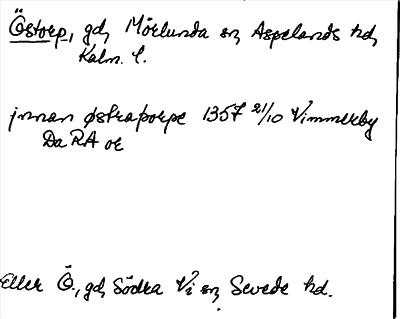 Östorp, gd, Mörlunda sn, Aspelands hd,
Kalm. l.
jnnan østraþorpe 1357 21/10 Vimmerby
Da RA or
Eller Ö., gd, Södra Vi sn, Sevede hd.